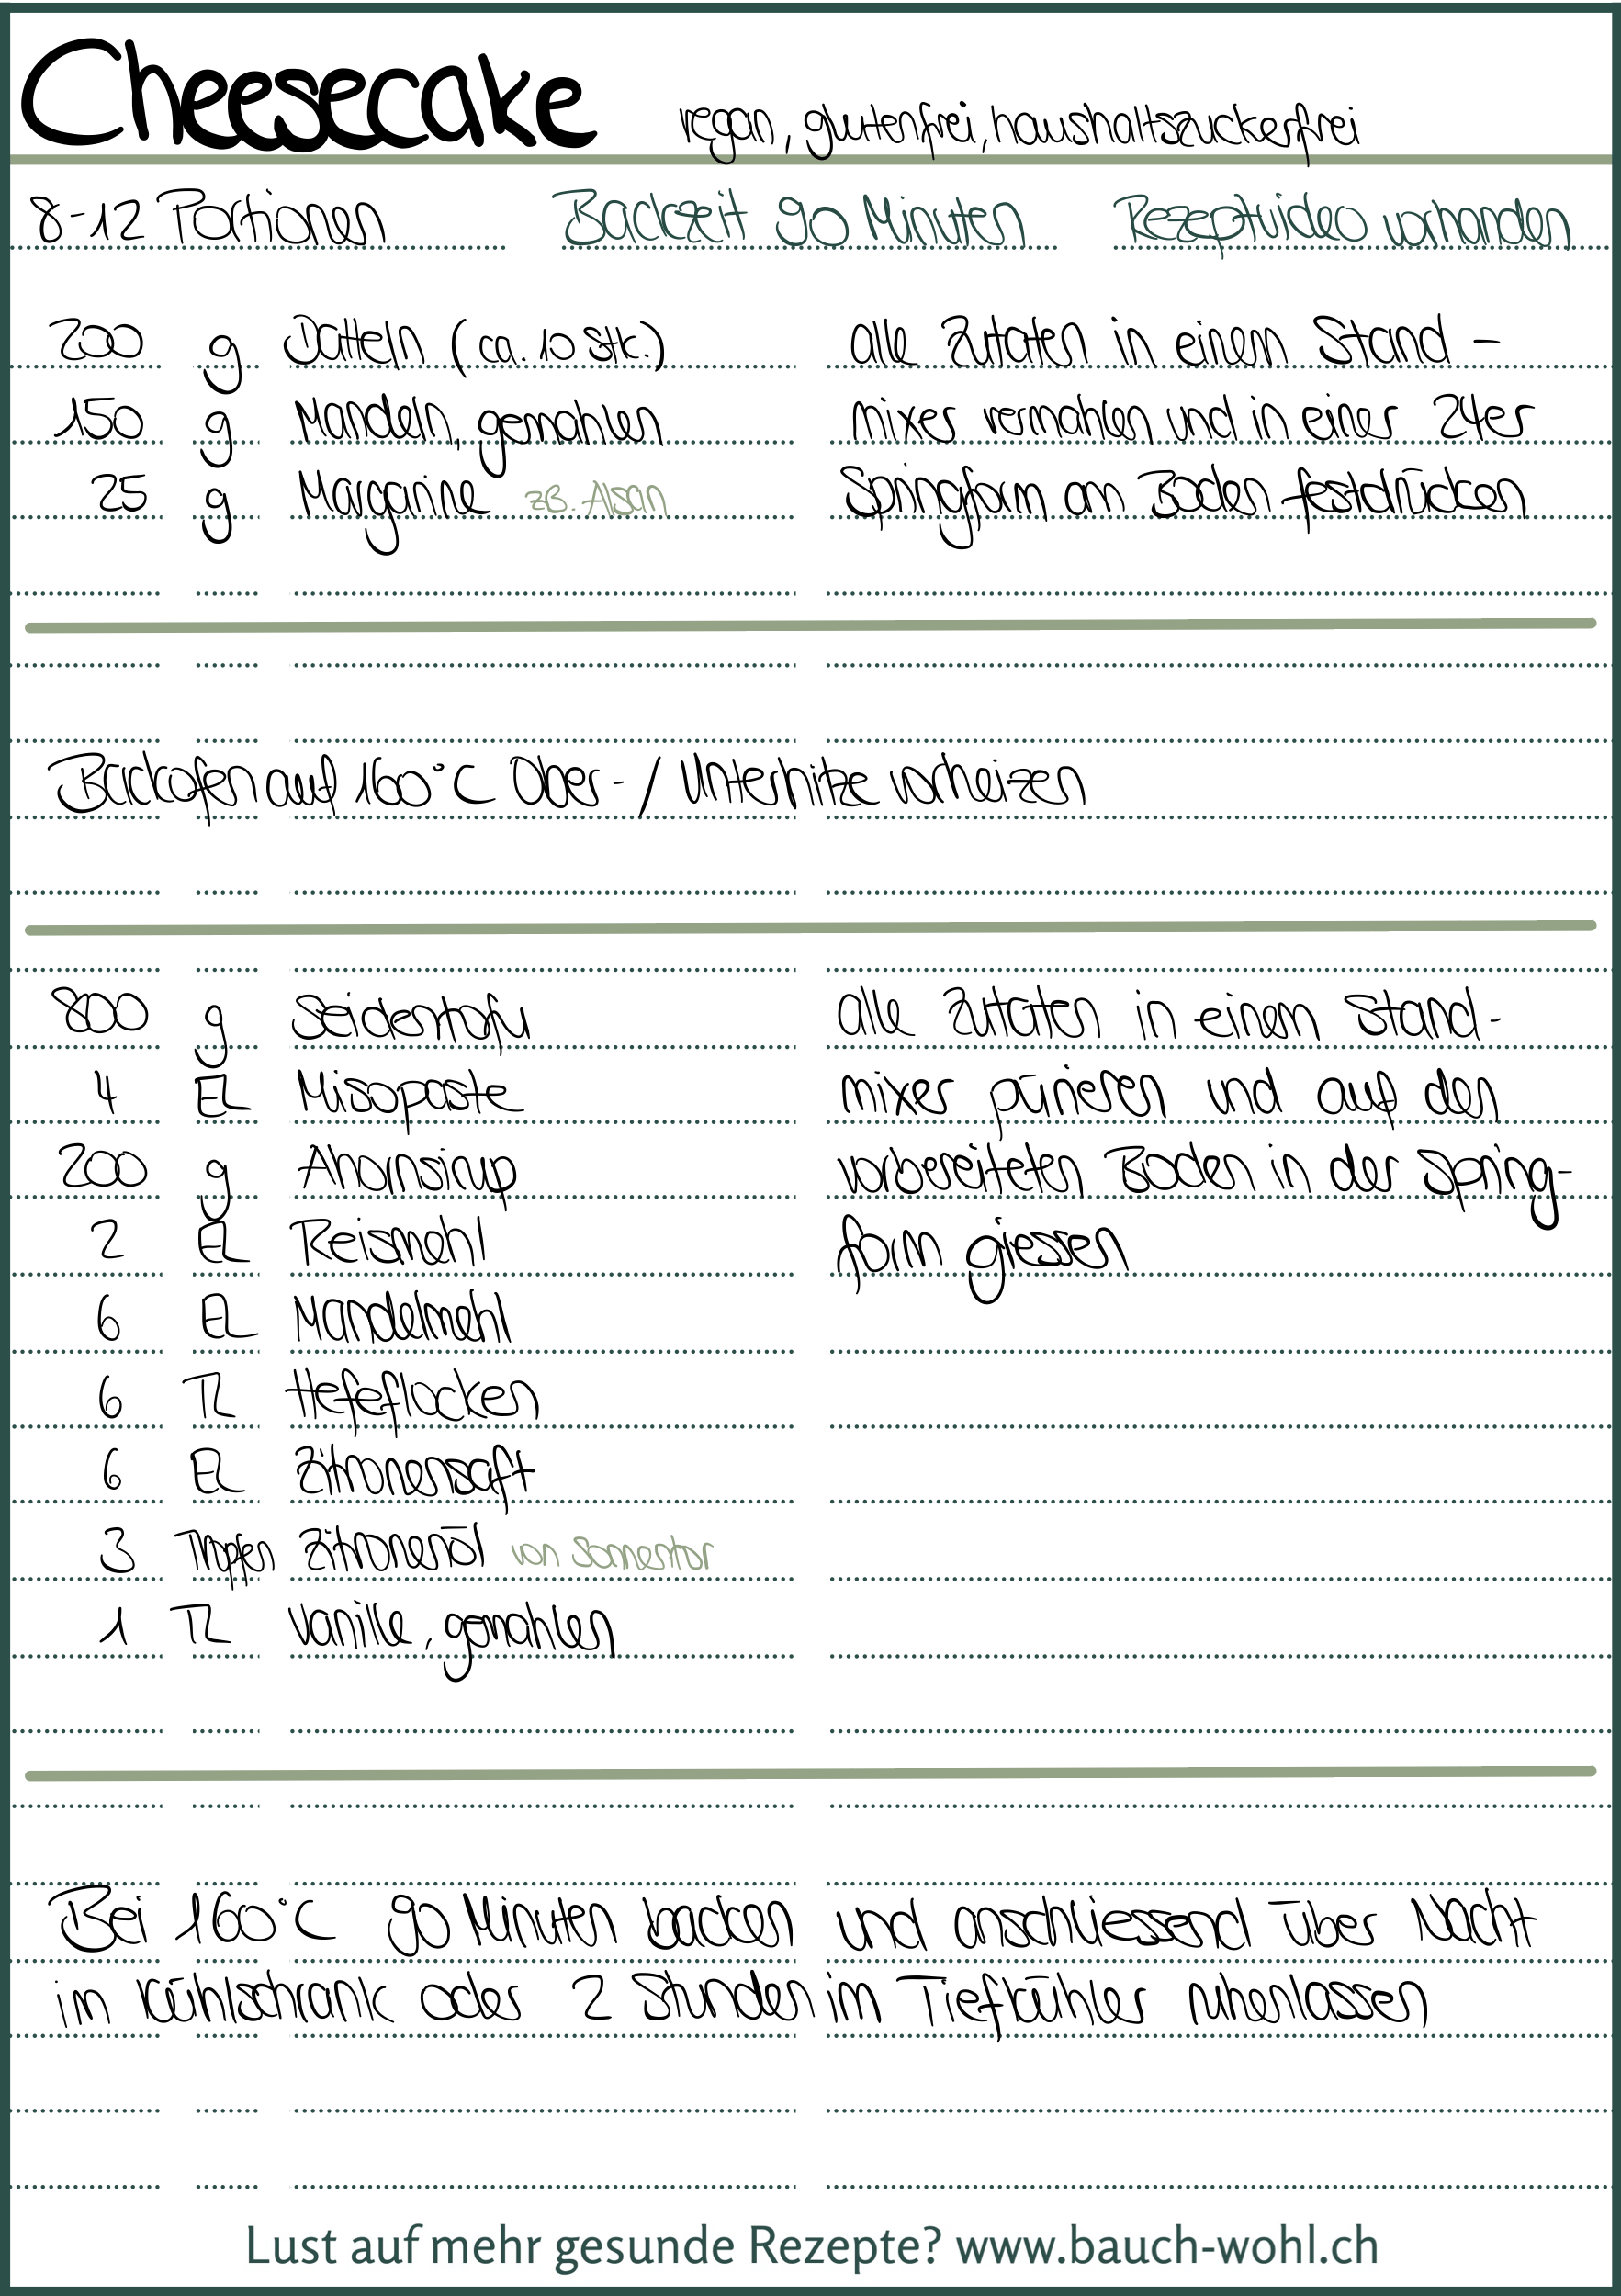 Cheesecake vegan, glutenfrei, haushaltszuckerfrei
8-12 Portionen Backzeit 90 Minuten Rezeptvideo vorhanden
200 g Datteln (ca. 10 Stk.) alle Zutaten in einem Stand-
150 g Mandeln, gemahlen mixer vermahlen und in einer 24er
25 g Margarine zB. Alsan Springform am Boden festdrücken
Backofen auf 160°C Ober-/Unterhitze vorheizen
800 g Seidentofu alle Zutaten in einem Stand-
4 EL Misopaste mixer pürieren und auf den
200 g Ahornsirup vorbereiteten Boden in der Spring-
2 EL Reismehl form giessen
6 EL Mandelmehl
6 TL Hefeflocken
6 EL Zitronensaft
3 Tropfen Zitronenöl von Sonnentor
1 TL Vanille, gemahlen
Bei 160°C 90 Minuten backen und anschliessend über Nacht
im Kühlschrank oder 2 Stunden im Tiefkühler ruhenlassen
Lust auf mehr gesunde Rezepte? www.bauch-wohl.ch